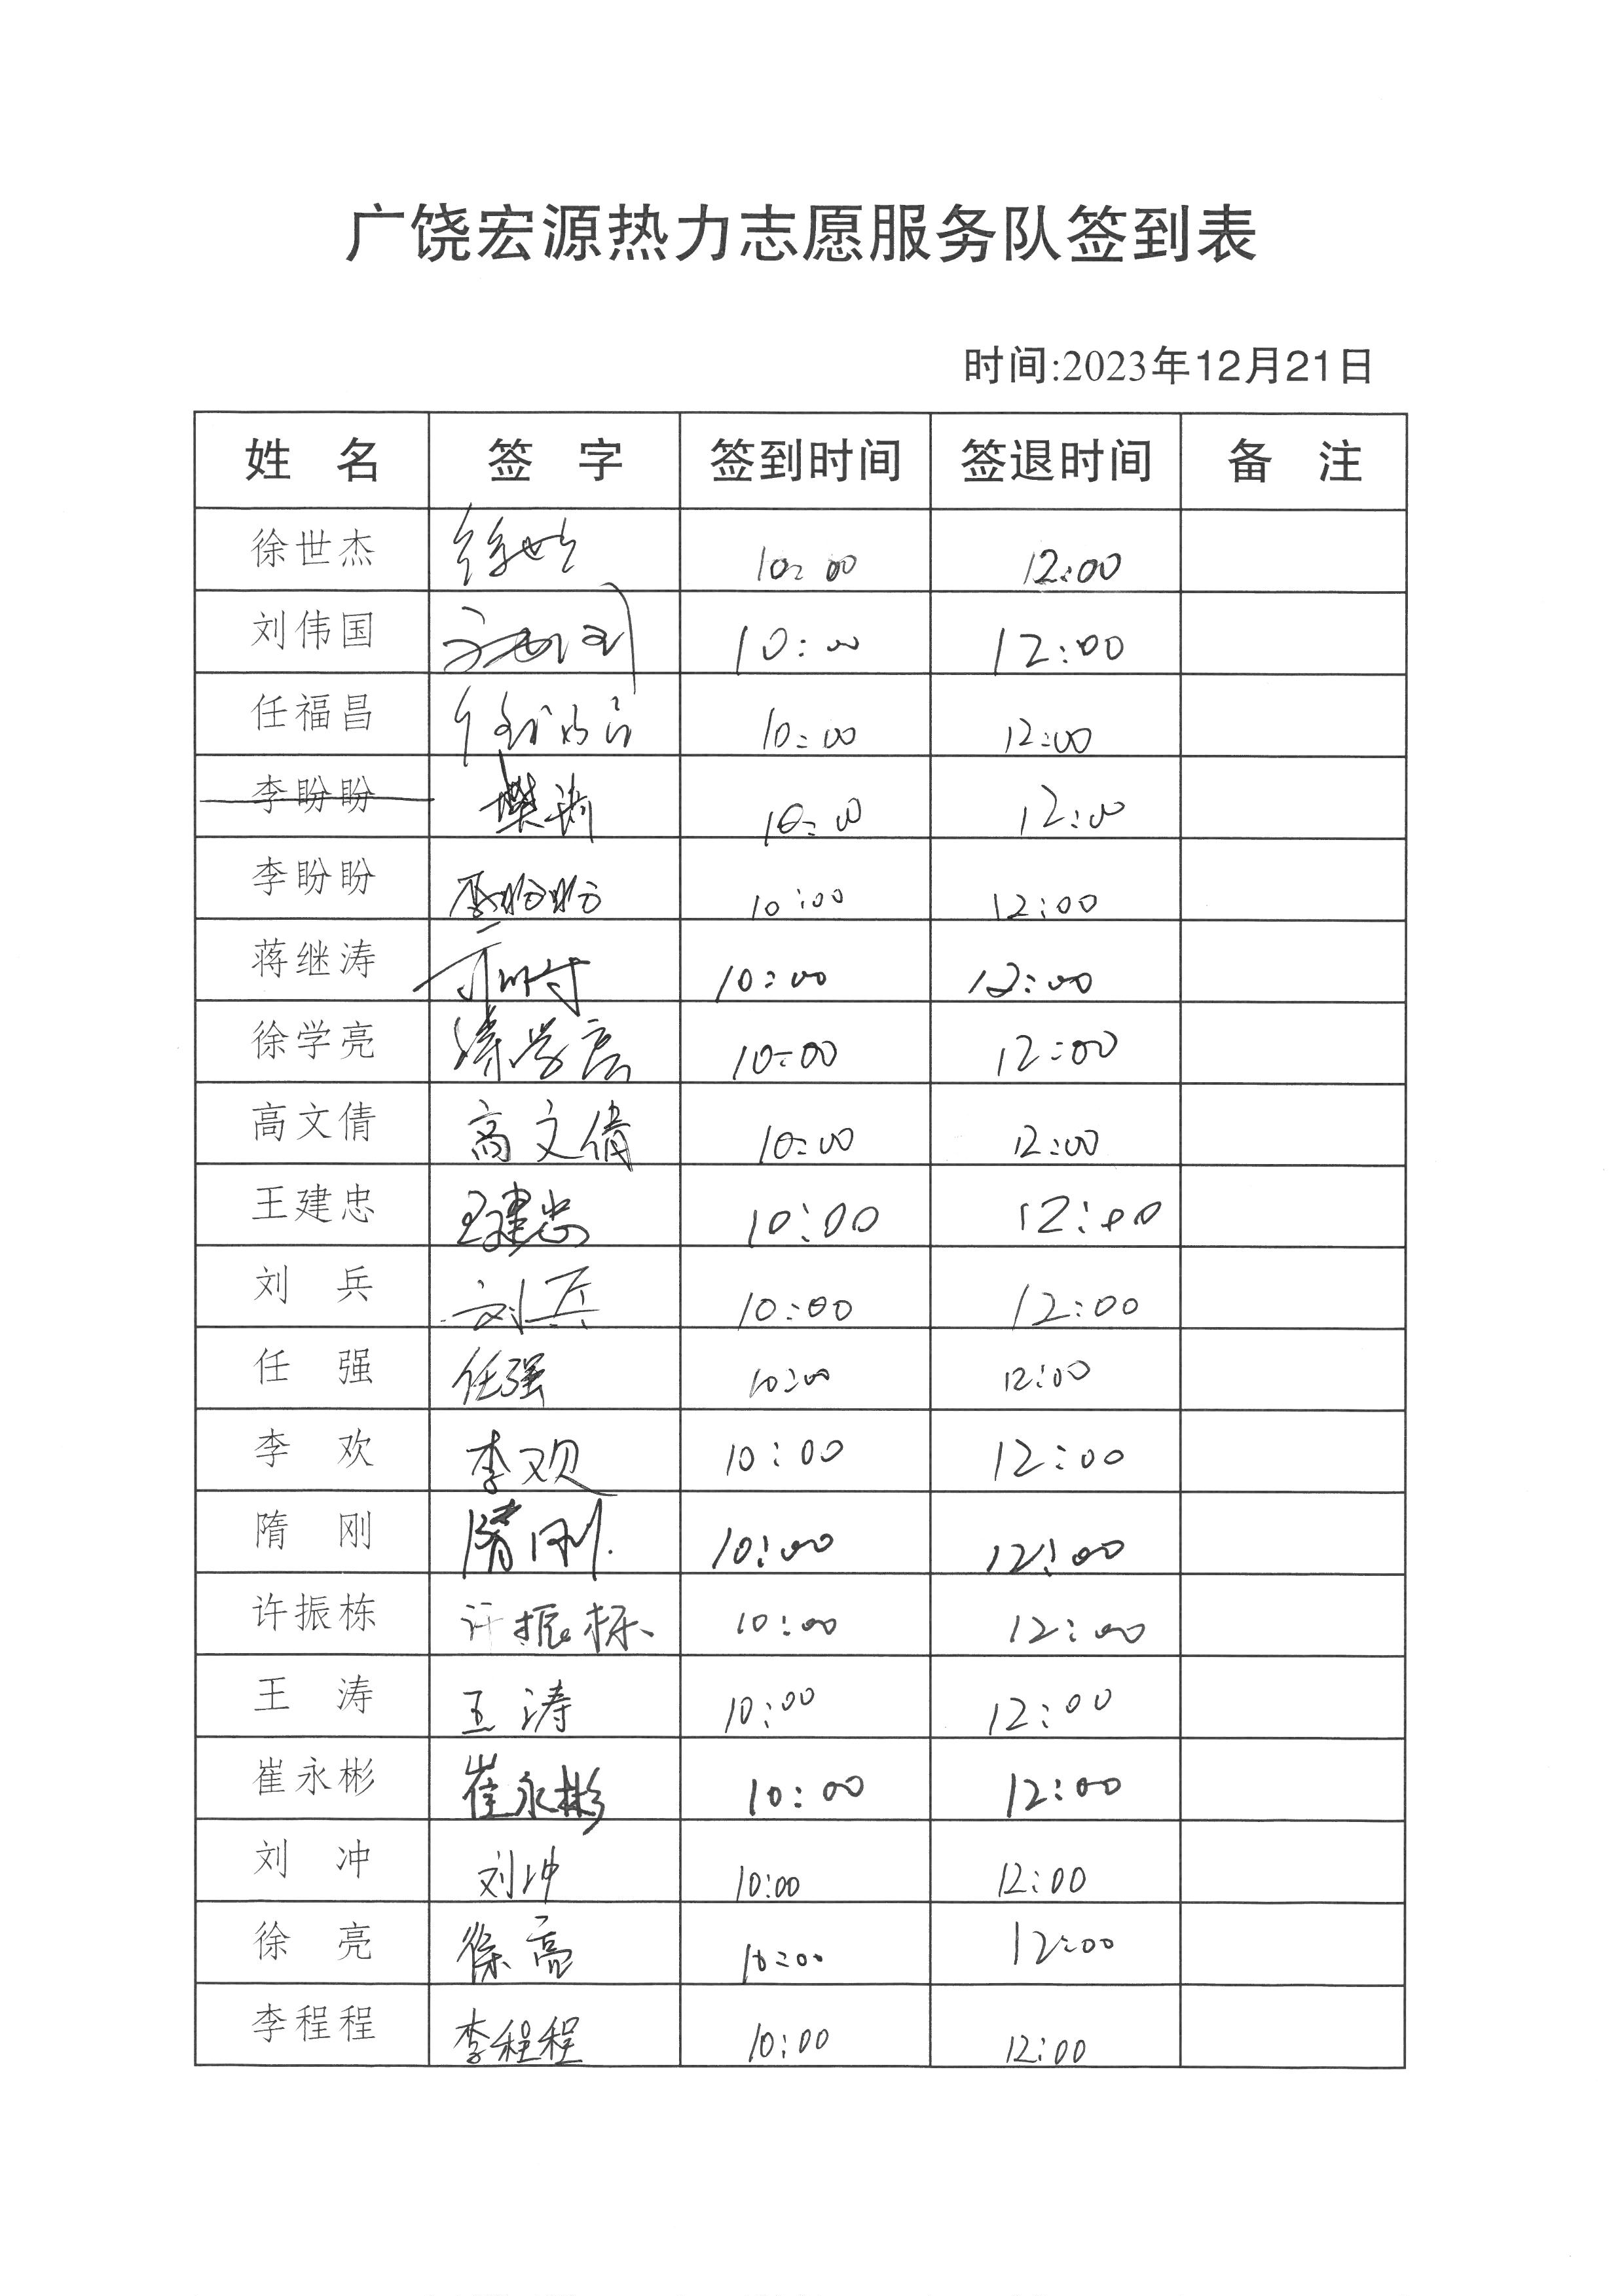 广饶宏源热力志愿服务队签到表
时间:2023年12月21日
姓 名 签 字 签到时间 签退时间 备 注
徐世杰 徐世杰 10:00 12:00
刘伟国 10:00 12:00
任福昌 任福昌 10:00 12:00
李盼盼 10:00 12:00
李盼盼 李盼盼 10:00 12:00
蒋继涛 10:00 12:00
徐学亮 徐学亮 10:00 12:00
高文倩 高文倩 10:00 12:00
王建忠 王建忠 10:00 12:00
刘 兵 刘兵 10:00 12:00
任 强 任强 10:00 12:00
李 欢 李欢 10:00 12:00
隋 刚 隋刚 10:00 12:00
许振栋 许振栋 10:00 12:00
王 涛 王涛 10:00 12:00
崔永彬 崔永彬 10:00 12:00
刘 冲 刘冲 10:00 12:00
徐 亮 徐亮 10:00 12:00
李程程 李程程 10:00 12:00